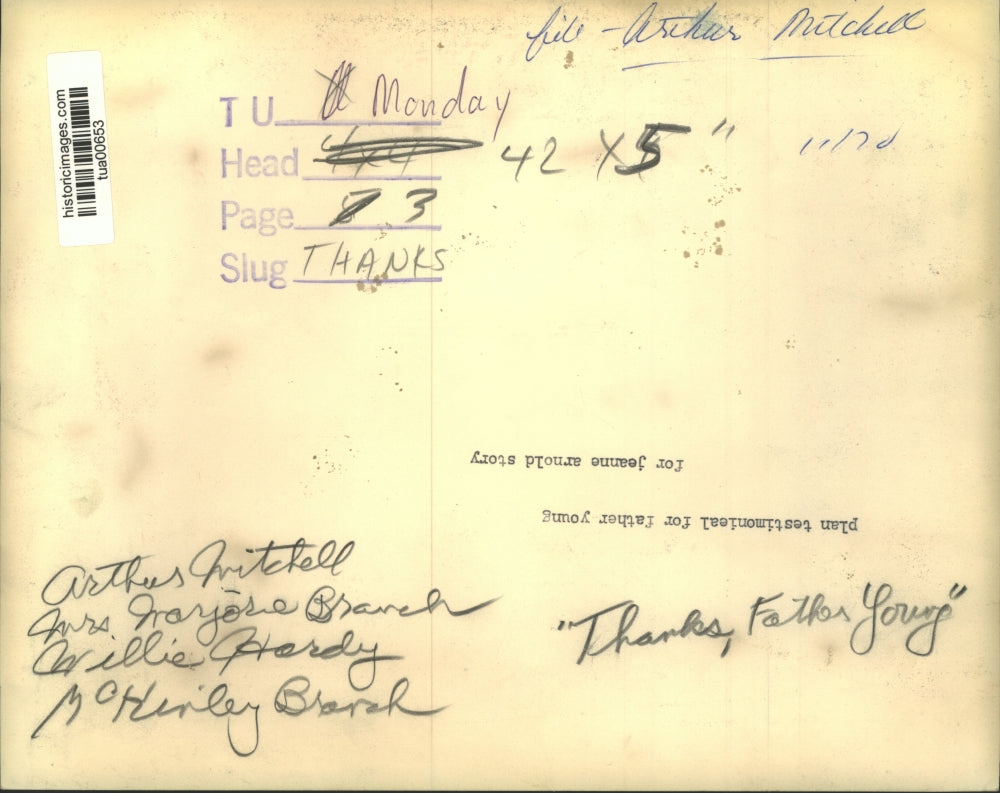 file - Arthur Mitchell
historicimages.com
tua00653
T U Monday
Head 4x4 42 X 5"
11/70
Page 3
Slug THANKS
for jeanne arnold story
plan testimonieal for father young
Arthur Mitchell
Mrs. Marjorie Branch
Willie Hardy
McKinley Branch
"Thanks, Father Young"